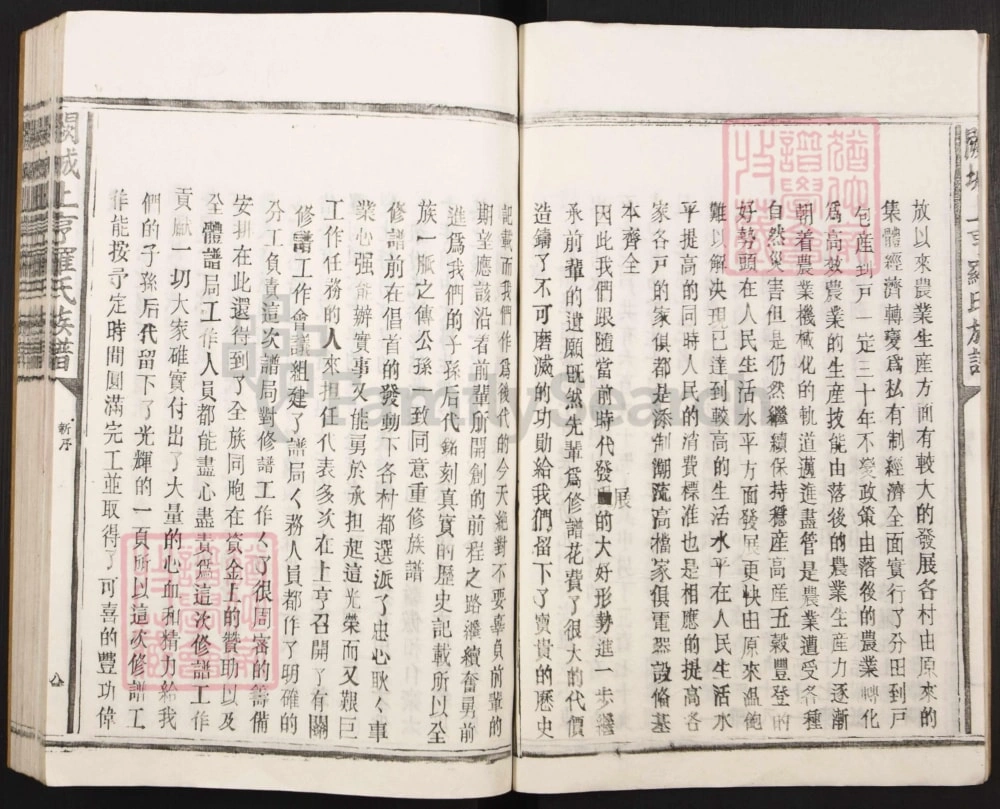 放以來農業生產方面有較大的發展各村由原來的
集體經濟轉變爲私有制經濟全面實行了分田到戸
包産到戸一定三十年不變政策由落後的農業轉化
爲高效農業的生産技能由落後的農業生産力逐漸
朝着農業機械化的軌道邁進盡管是農業遭受各種
自然災害但是仍然繼續保持穩産高産五穀豐登的
好勢頭在人民生活水平方面發展更快由原來溫飽
難以解決現已達到較高的生活水平在人民生活水
平提高的同時人民的消費標准也是相應的提高各
家各戸的家俱都是添制潮流高檔家俱電器設俻基
本齊全
因此我們跟隨當前時代發展的大好形勢進一步繼
承前輩的遺願既然先輩爲修譜花費了很大的代價
造鑄了不可磨滅的功勛給我們留下了寳貴的歷史
記載而我們作爲後代的今天絕對不要辜負前輩的
期望應該沿着前輩所開創的前程之路繼續奮勇前
進爲我們的子孫后代銘刻真實的歷史記載所以全
族一脈之傳公孫一致同意重修族譜
修譜前在倡首的發動下各村都選派了忠心耿々事
業心强能辦實事又能勇於承担起這光榮而又艱巨
工作任務的人來担任代表多次在上亨召開了有關
修譜工作會議組建了譜局々務人員都作了明確的
分工負責這次譜局對修譜工作々了很周密的籌備
安排在此還得到了全族同胞在資金上的贊助以及
全體譜局工作人員都能盡心盡責爲這次修譜工作
貢獻一切大家確實付出了大量的心血和精力給我
們的子孫后代留下了光輝的一頁所以這次修譜工
作能按予定時間圓滿完工並取得了可喜的豐功偉
上亨羅氏族譜
新序
八
FamilySearch